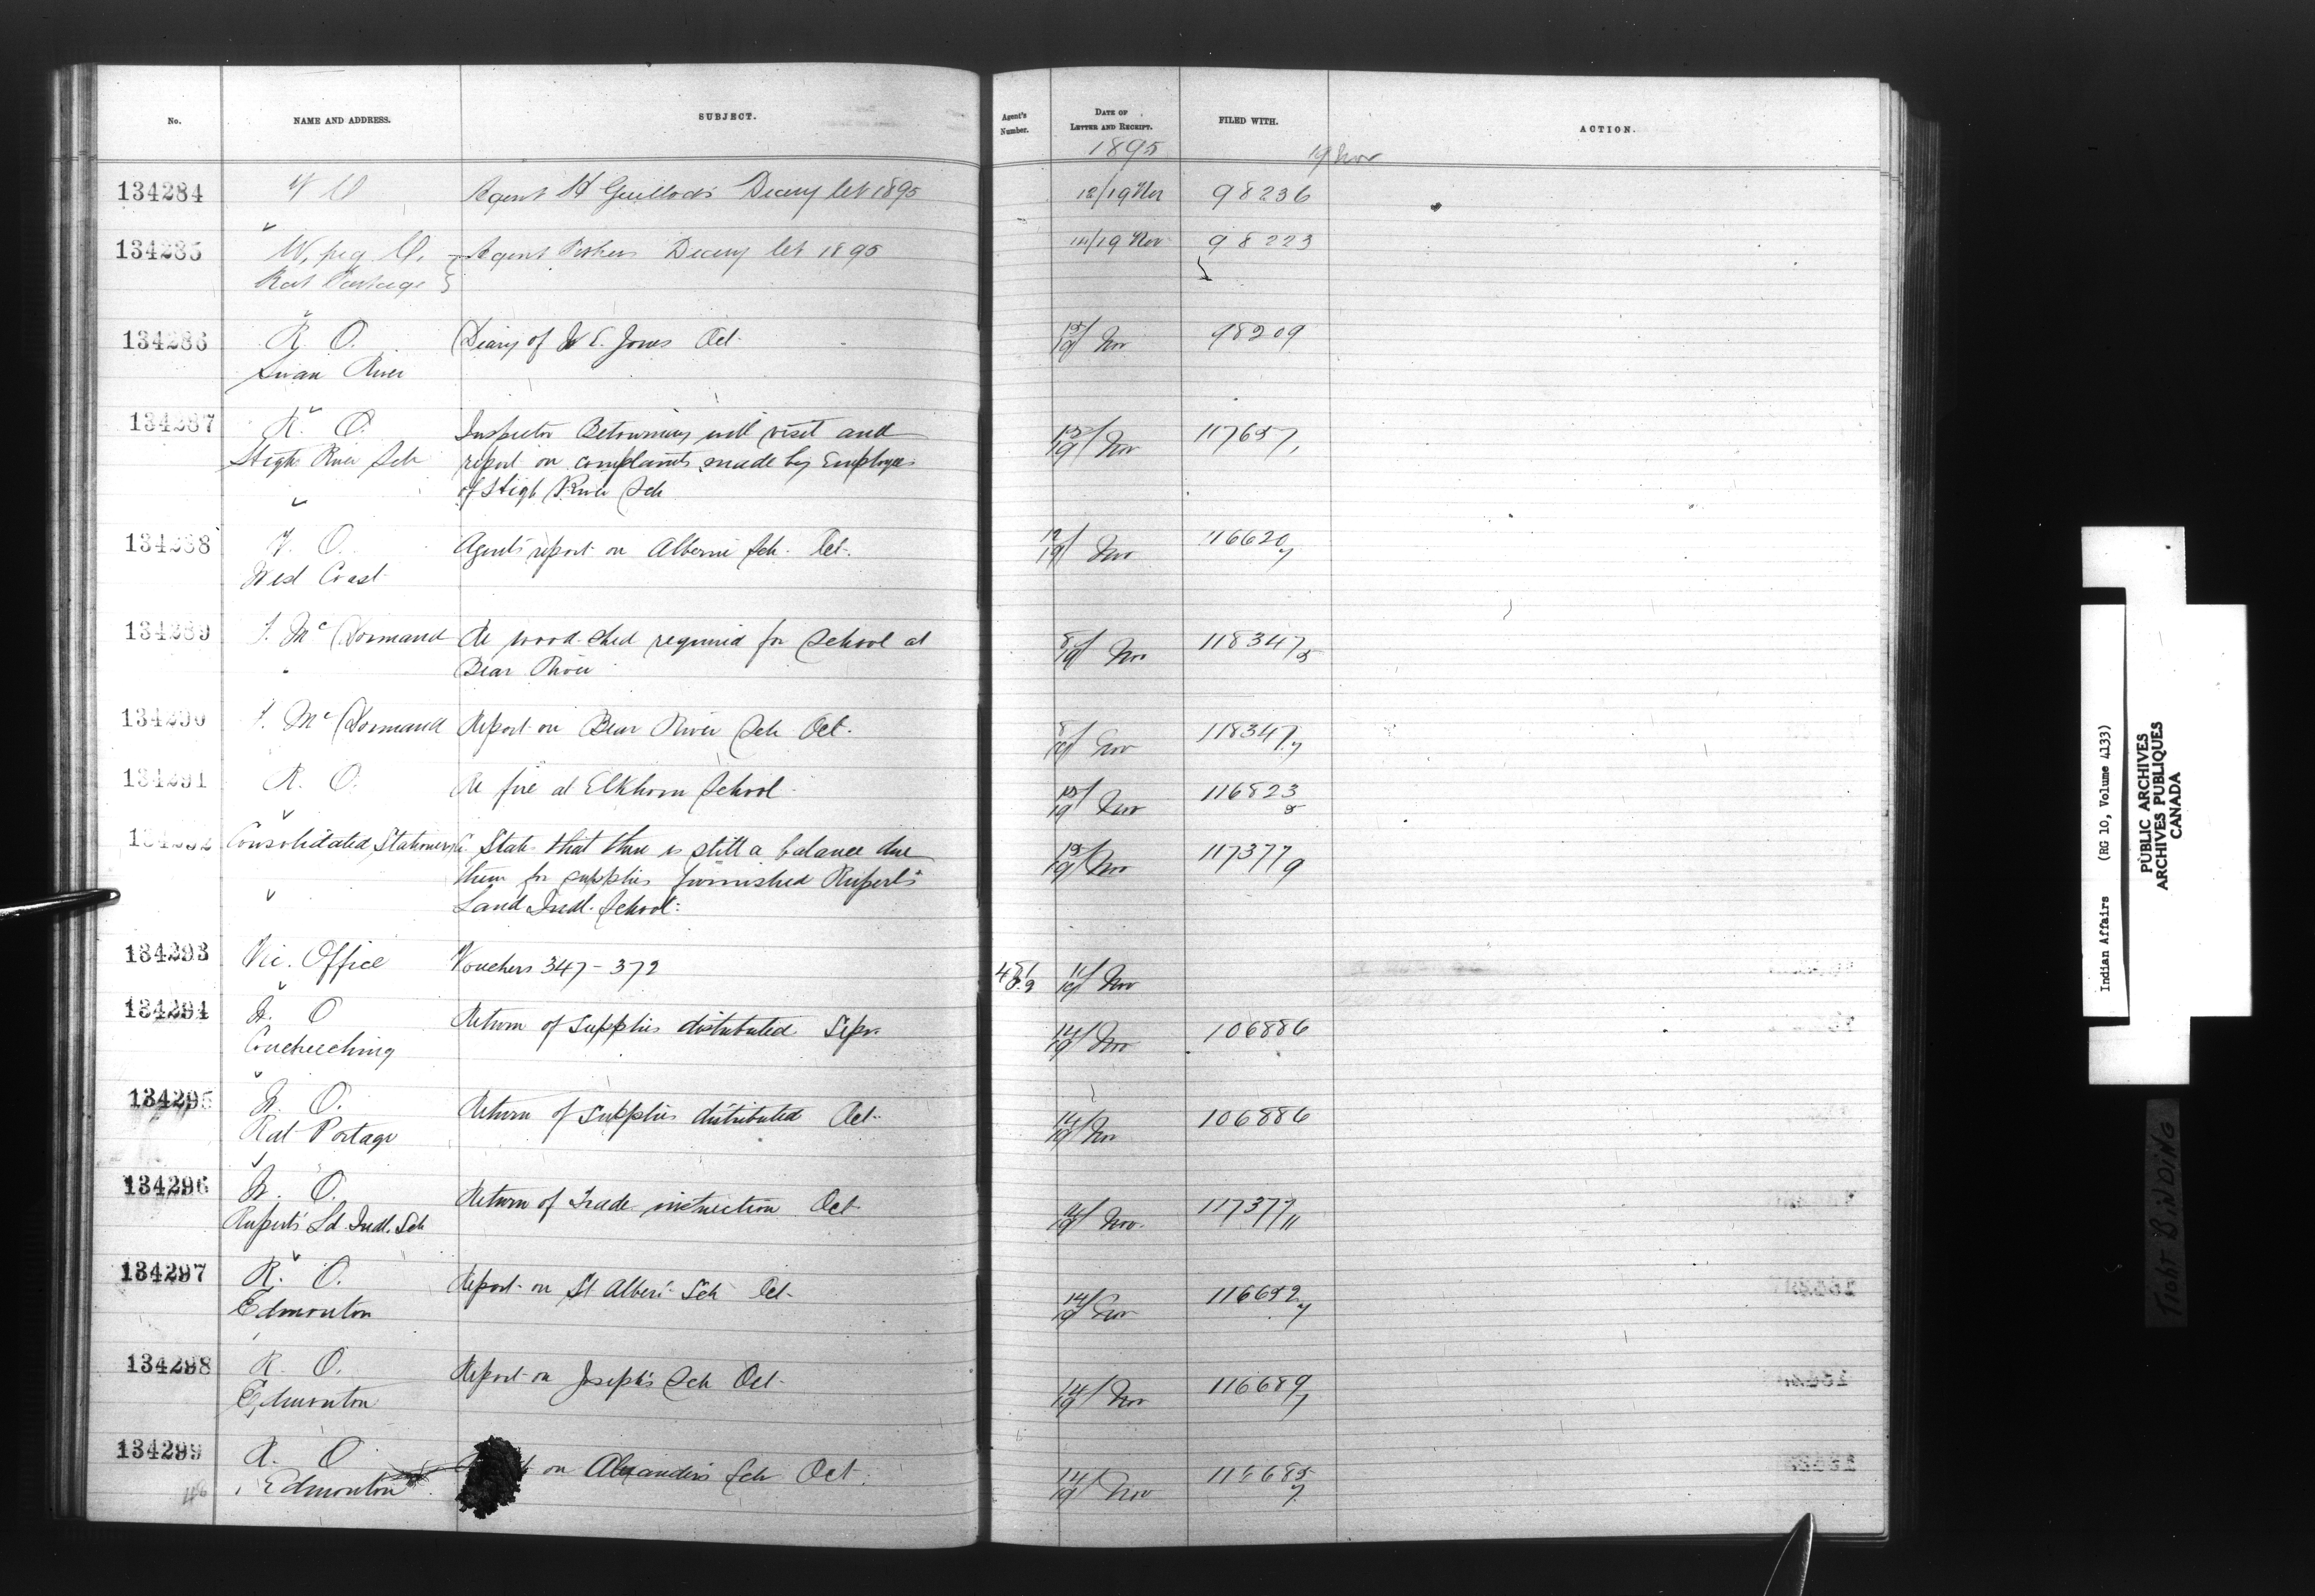 No. NAME AND ADDRESS. SUBJECT. Agent's Number. DATE OF LETTER AND RECEIPT. FILED WITH. ACTION.
1895 19 Nov
134284 Agent Diary Oct 1895 12/19 Nov 98236
134285 W,peg O. Agent Diary Oct 1895 14/19 Nov 98223
Rat Portage
134286 R. O. Diary of W E. Jones Oct 15/19 Nov 98209
Swan River
134287 R. O. Inspector will visit and 15/19 Nov 117657/1
High River Sch report on complaints made by Employees
of High River Sch
134288 V. O. Agents report on Alberni Sch. Oct. 12/19 Nov 116620/7
West Coast
134289 F. McDormand Re wood-shed required for School at 8/19 Nov 118347/5
Bear River
134290 F. McDormand Report on Bear River Sch Oct. 8/19 Nov 118347/7
134291 R. O. Re fire at Elkhorn School 15/19 Nov 116823/8
134292 Consolidated Stationery Co. State that there is still a balance due 15/19 Nov 117377/9
them for supplies furnished Rupert's
Land Indl. School.
134293 Vic. Office Vouchers 347-372 11/19 Nov
134294 W. O Return of Supplies distributed Sepr. 14/19 Nov 106886
Coucheeching
134295 W. O. Return of Supplies distributed Oct. 14/19 Nov 106886
Rat Portage
134296 W. O. Return of Trade instruction Oct 14/19 Nov. 117377/11
Rupert's Ld. Indl. Sch
134297 R. O. Report on St Albert Sch Oct. 14/19 Nov 116652/7
Edmonton
134298 R. O. Report on Joseph's Sch Oct. 14/19 Nov 116689/7
Edmonton
134299 R. O on Alexander's Sch Oct. 14/19 Nov
Edmonton
Indian Affairs (RG 10, Volume 4133)
PUBLIC ARCHIVES
ARCHIVES PUBLIQUES
CANADA
TIGHT BINDING